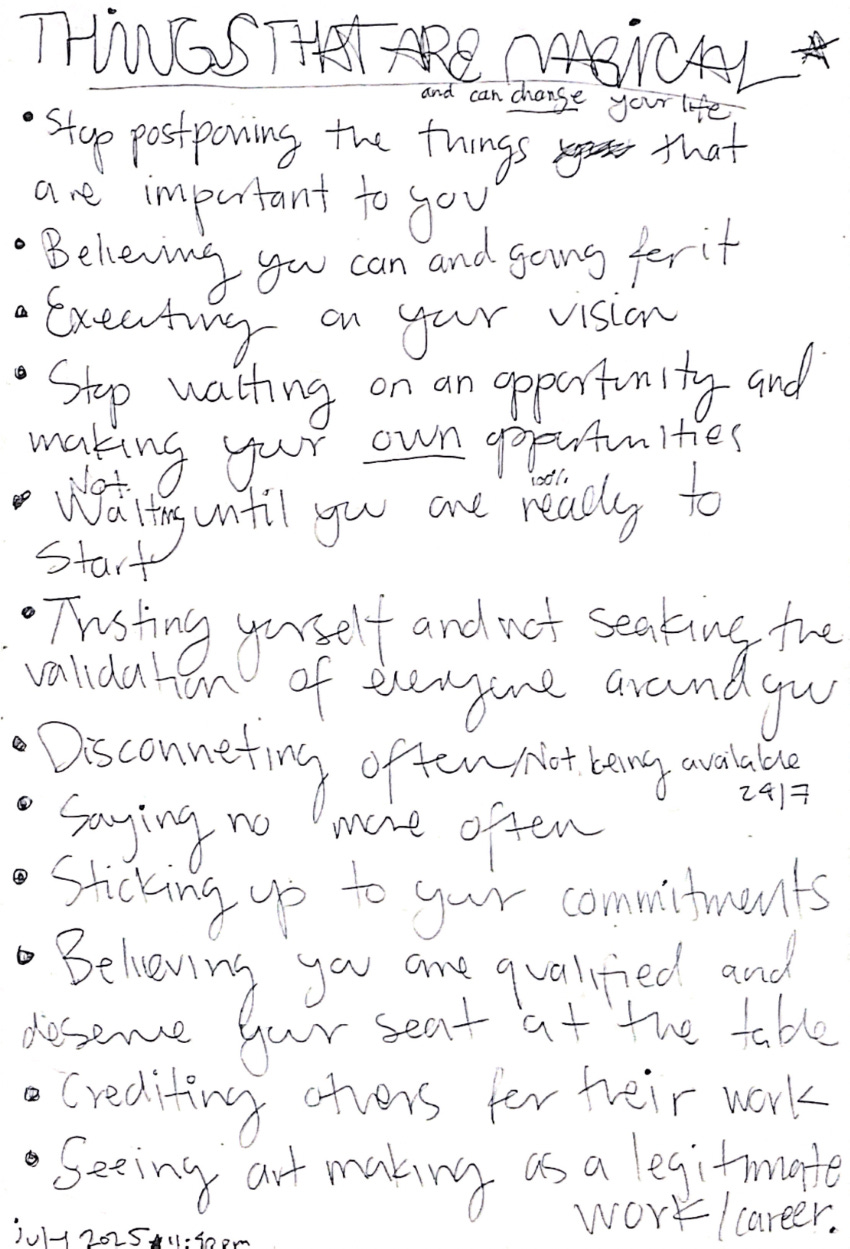 THINGS THAT ARE MAGICAL
and can change your life
• Stop postponing the things that
are important to you
• Believing you can and going for it
• Executing on your vision
• Stop waiting on an opportunity and
making your own opportunities
Not
• Waiting until you are 100% ready to
Start
• Trusting yourself and not seaking the
validation of everyone around you
• Disconneting often/Not being available
24/7
• Saying no more often
• Sticking up to your commitments
• Believing you are qualified and
deserve your seat at the table
• Crediting others for their work
• Seeing art making as a legitimate
work/career.
july 2025